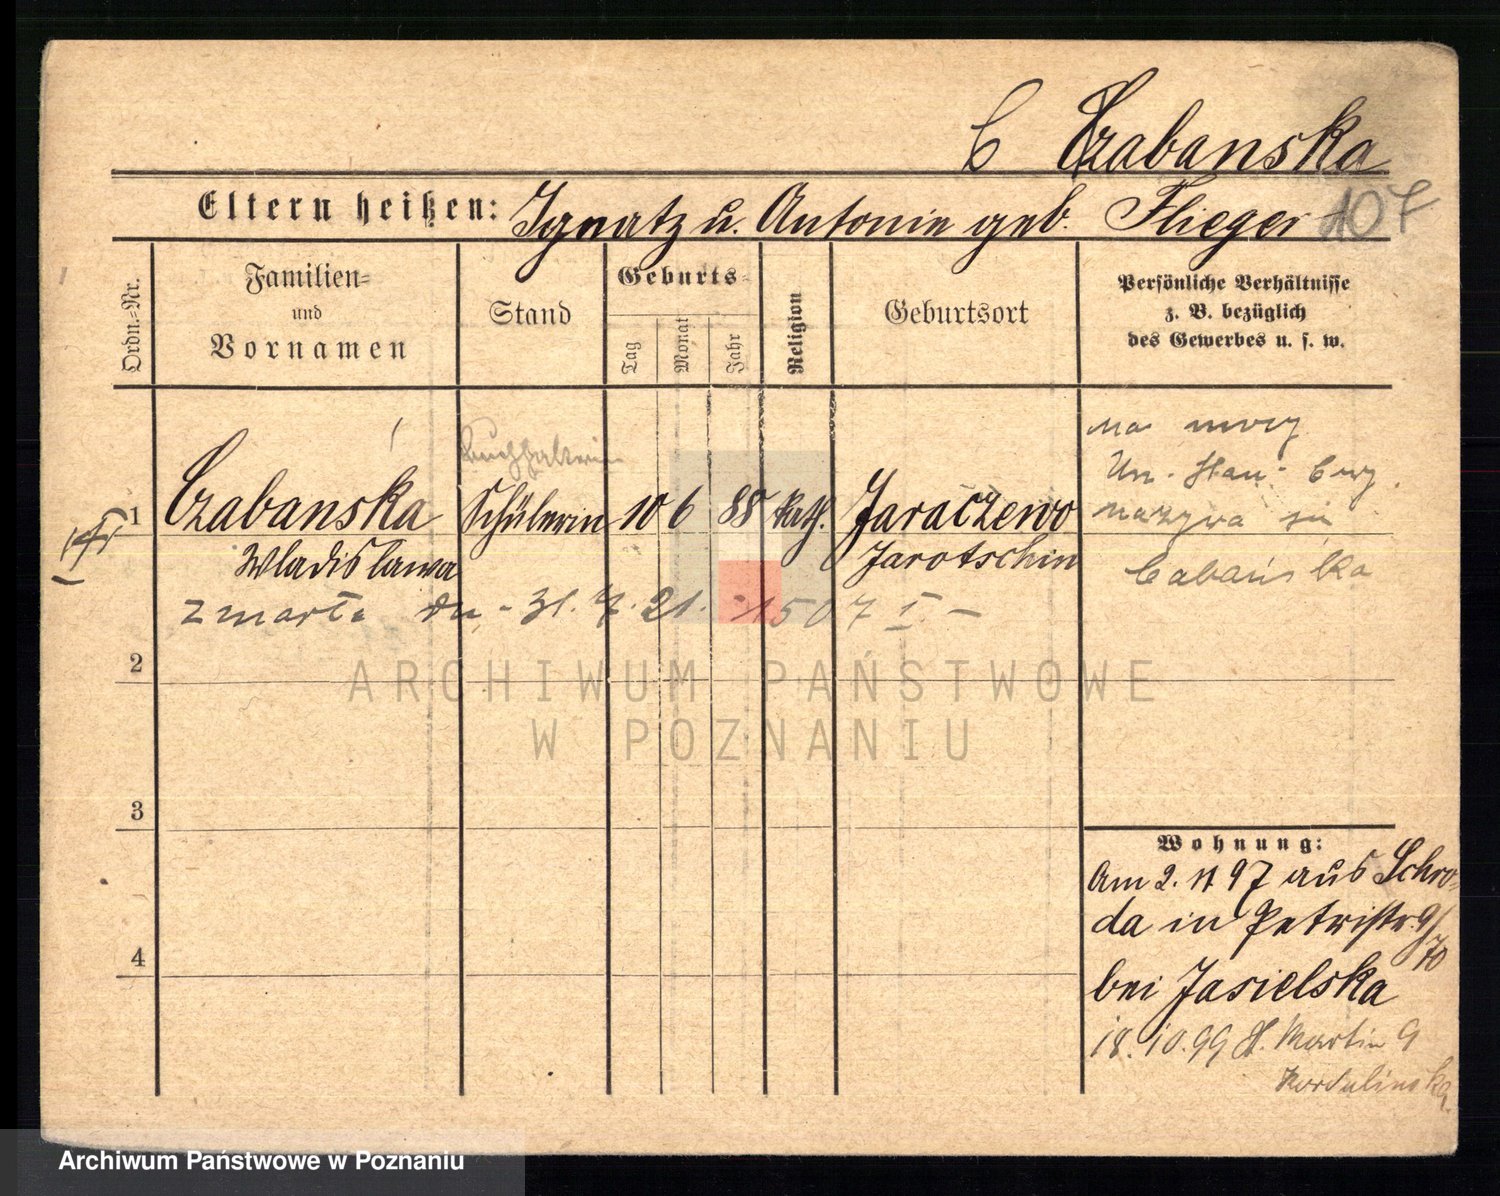 C Czabanska
Eltern heißen: Ignatz u. Antonie geb. Flieger 107
Ordn.-Nr.
Familien-
und
Vornamen
Stand
Geburts-
Tag
Monat
Jahr
Religion
Geburtsort
Persönliche Verhältnisse
z. B. bezüglich
des Gewerbes u. s. w.
Buchhalterin
1 Czabanska Schülerin 10 6 88 kath. Jaraczewo
Wladislawa Jarotschin
zmarła dn. - 31. 7. 21. - 1507 I. -
nazywa się
Cabańska
2
3
4
ARCHIWUM PAŃSTWOWE
W POZNANIU
Wohnung:
Am 2. 11 97 aus Schro-
da in Petristr. 9/
70
bei Jasielska
18. 10. 99 St. Martin 9
Archiwum Państwowe w Poznaniu